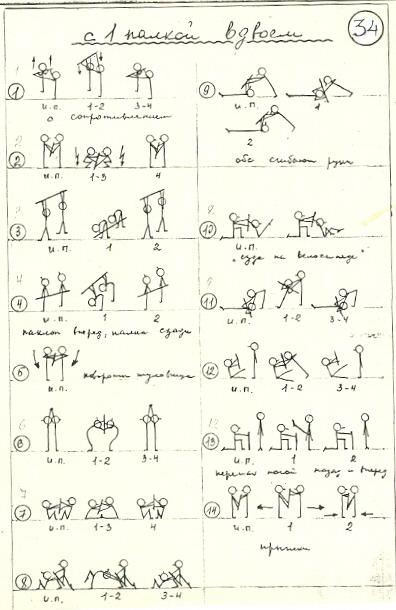 с 1 палкой вдвоем
34
1
1
и.п. 1-2 3-4
с сопротивлением
2
2
и.п. 1-3 4
3
3
и.п. 1 2
4
4
и.п. 1 2
наклон вперед, палка сзади
5
повороты туловища
и.п.
6
6
и.п. 1-2 3-4
7
7
и.п. 1-3 4
8
и.п. 1-2 3-4
9
и.п. 1
2
оба сгибают руки
10
и.п.
"езда на велосипеде"
11
и.п. 1-2 3-4
12
и.п. 1-2 3-4
13
и.п. 1 2
перемах ногой назад и вперед
14
и.п. 1 2
прыжки